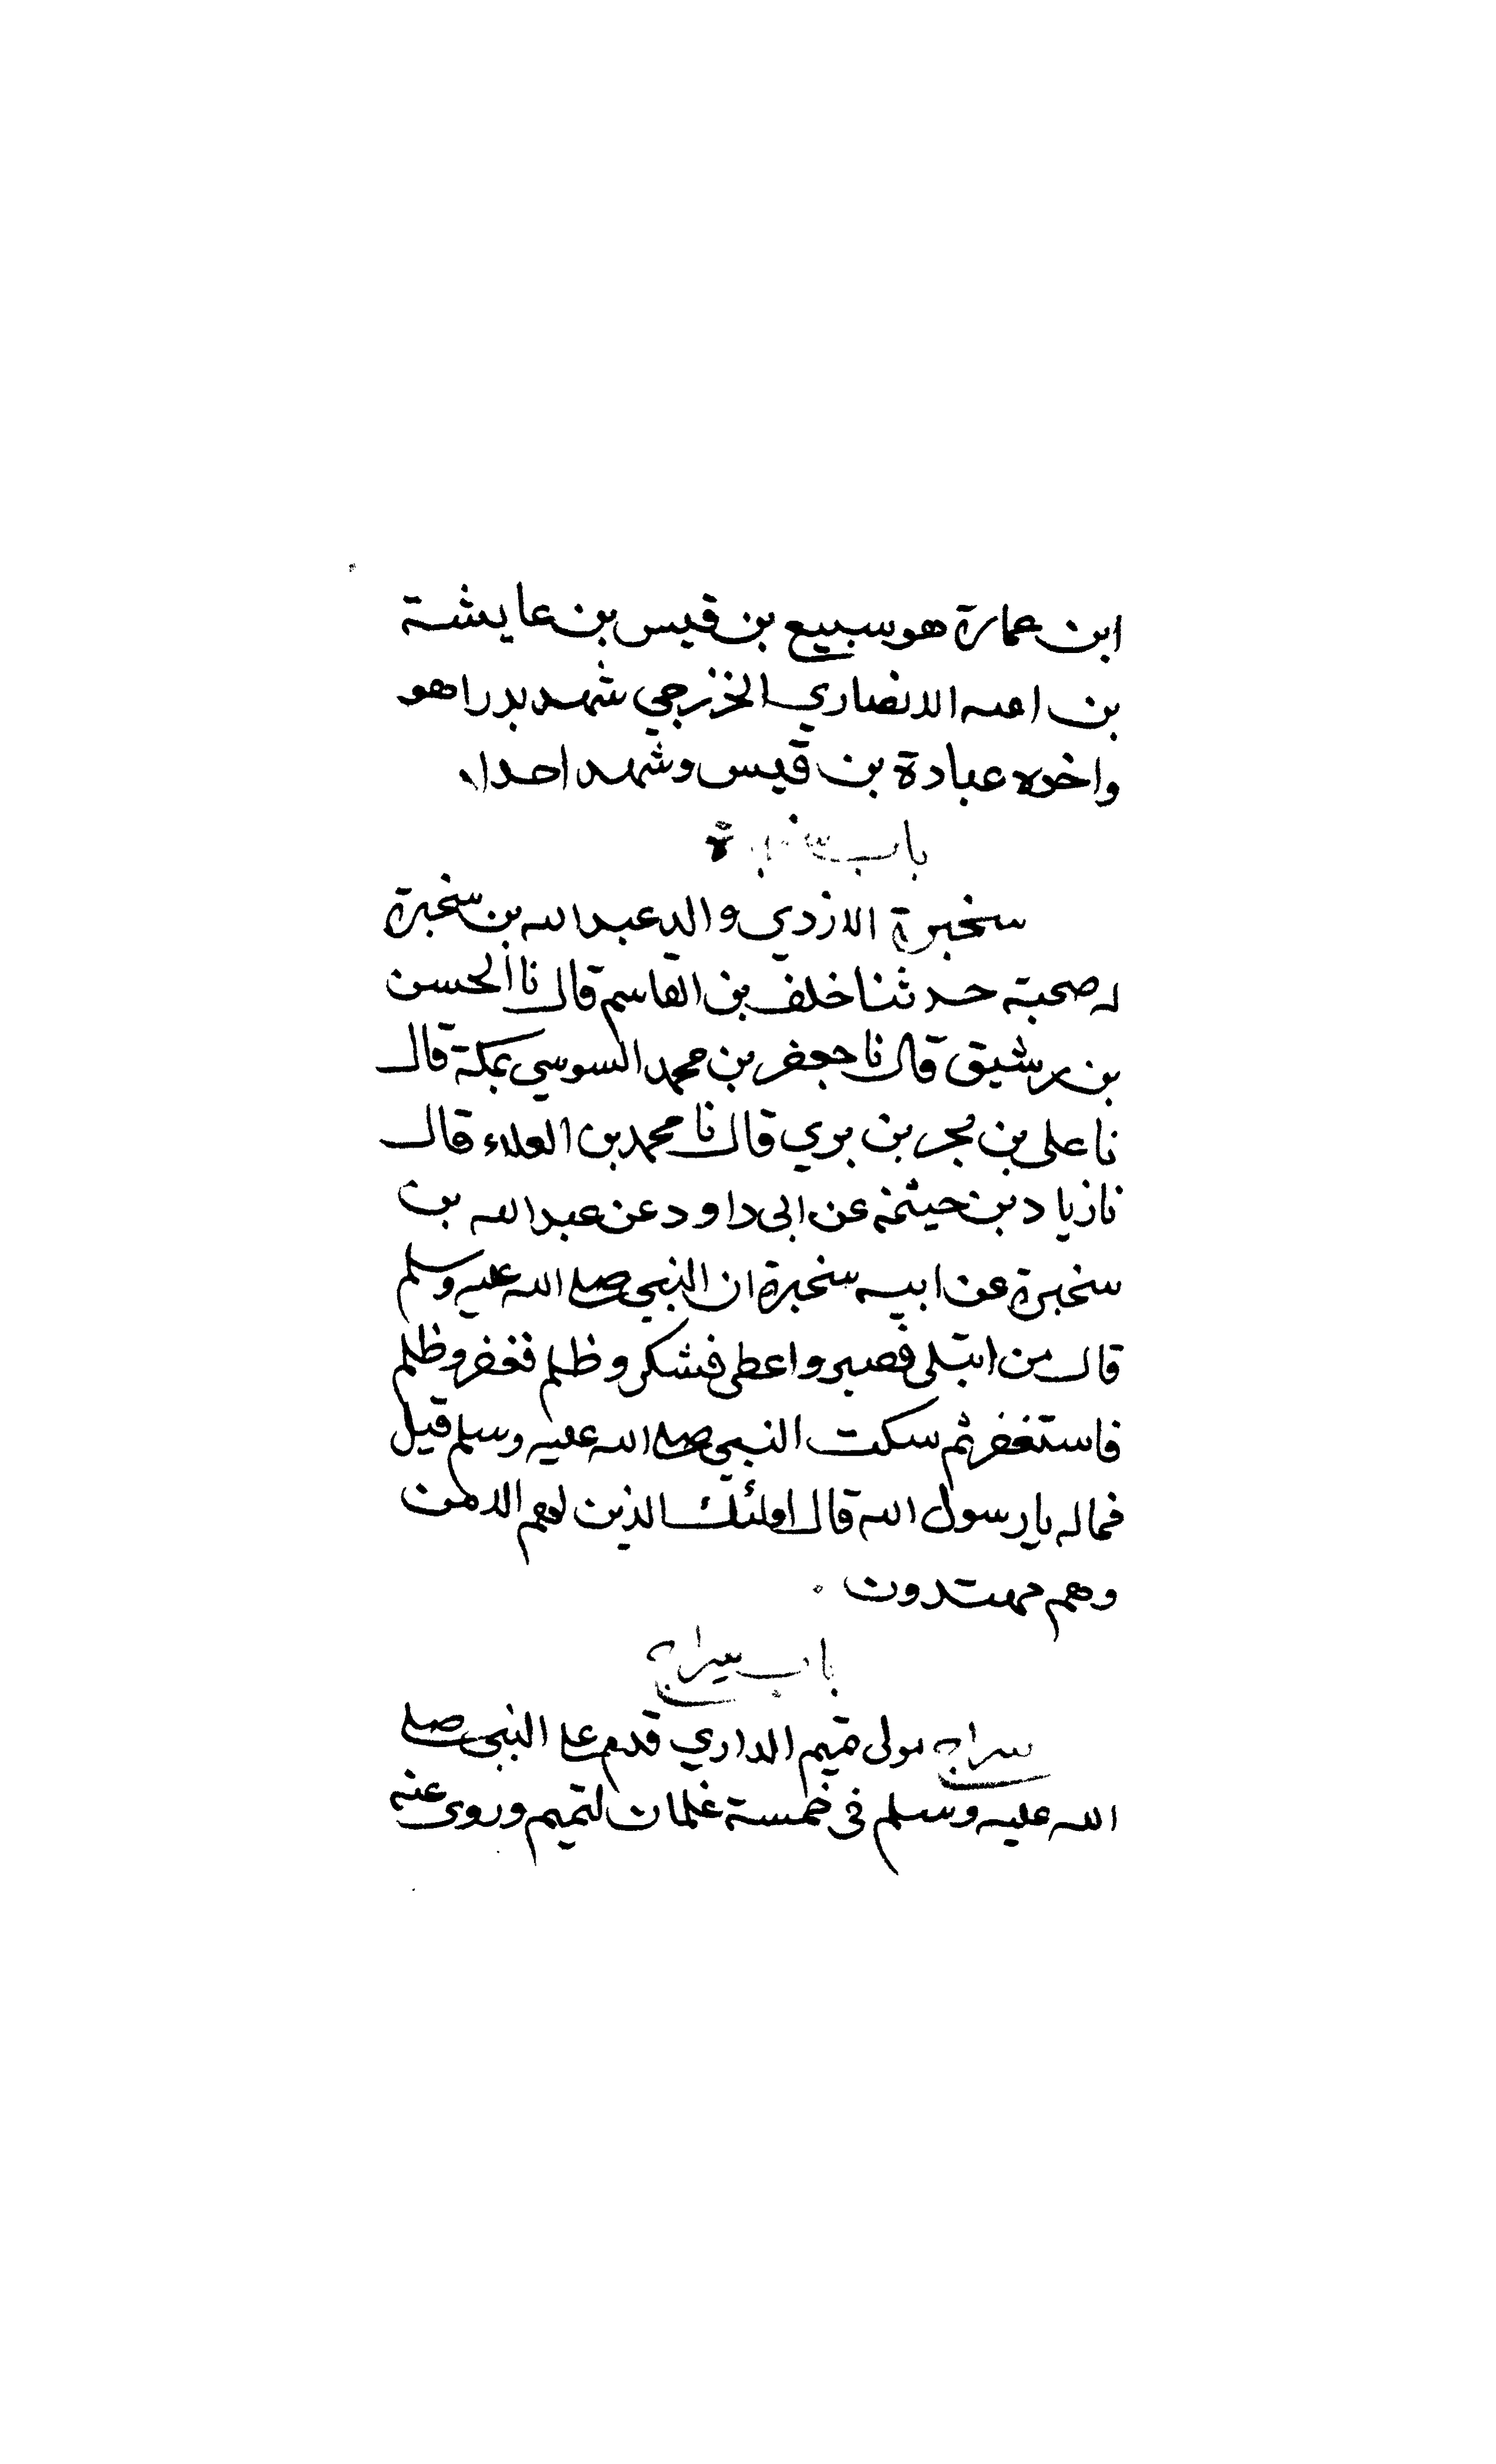 ابن عمارة هو سبيع بن قيس بن عايشة
بن اميه الانصاري الخزرجي شهد بدرا هو
واخوه عبادة بن قيس وشهد احدا
باب سخبرة
سخبرة الازدي والد عبد الله بن سخبرة
له صحبته حدثنا خلف بن القاسم قال نا الحسن
بن رشيق قال نا جعفر بن محمد السوسي بمكة قال
نا على بن بحر بن بري قال نا محمد بن العلاء قال
نا زياد بن خيثمه عن ابى داود عن عبد الله بن
سخبرة عن ابيه سخبرة ان النبي صلى الله عليه وسلم
قال من ابتلى فصبر واعطى فشكر وظلم فغفر وظلم
فاستغفر ثم سكت النبي صلى الله عليه وسلم قيل
فما له يا رسول الله قال اولئك الذين لهم الامن
وهم مهتدون
باب سراج
سراج مولى تميم الداري قدم على النبى صلى
الله عليه وسلم فى خمسة غلمان لتميم وروى عنه